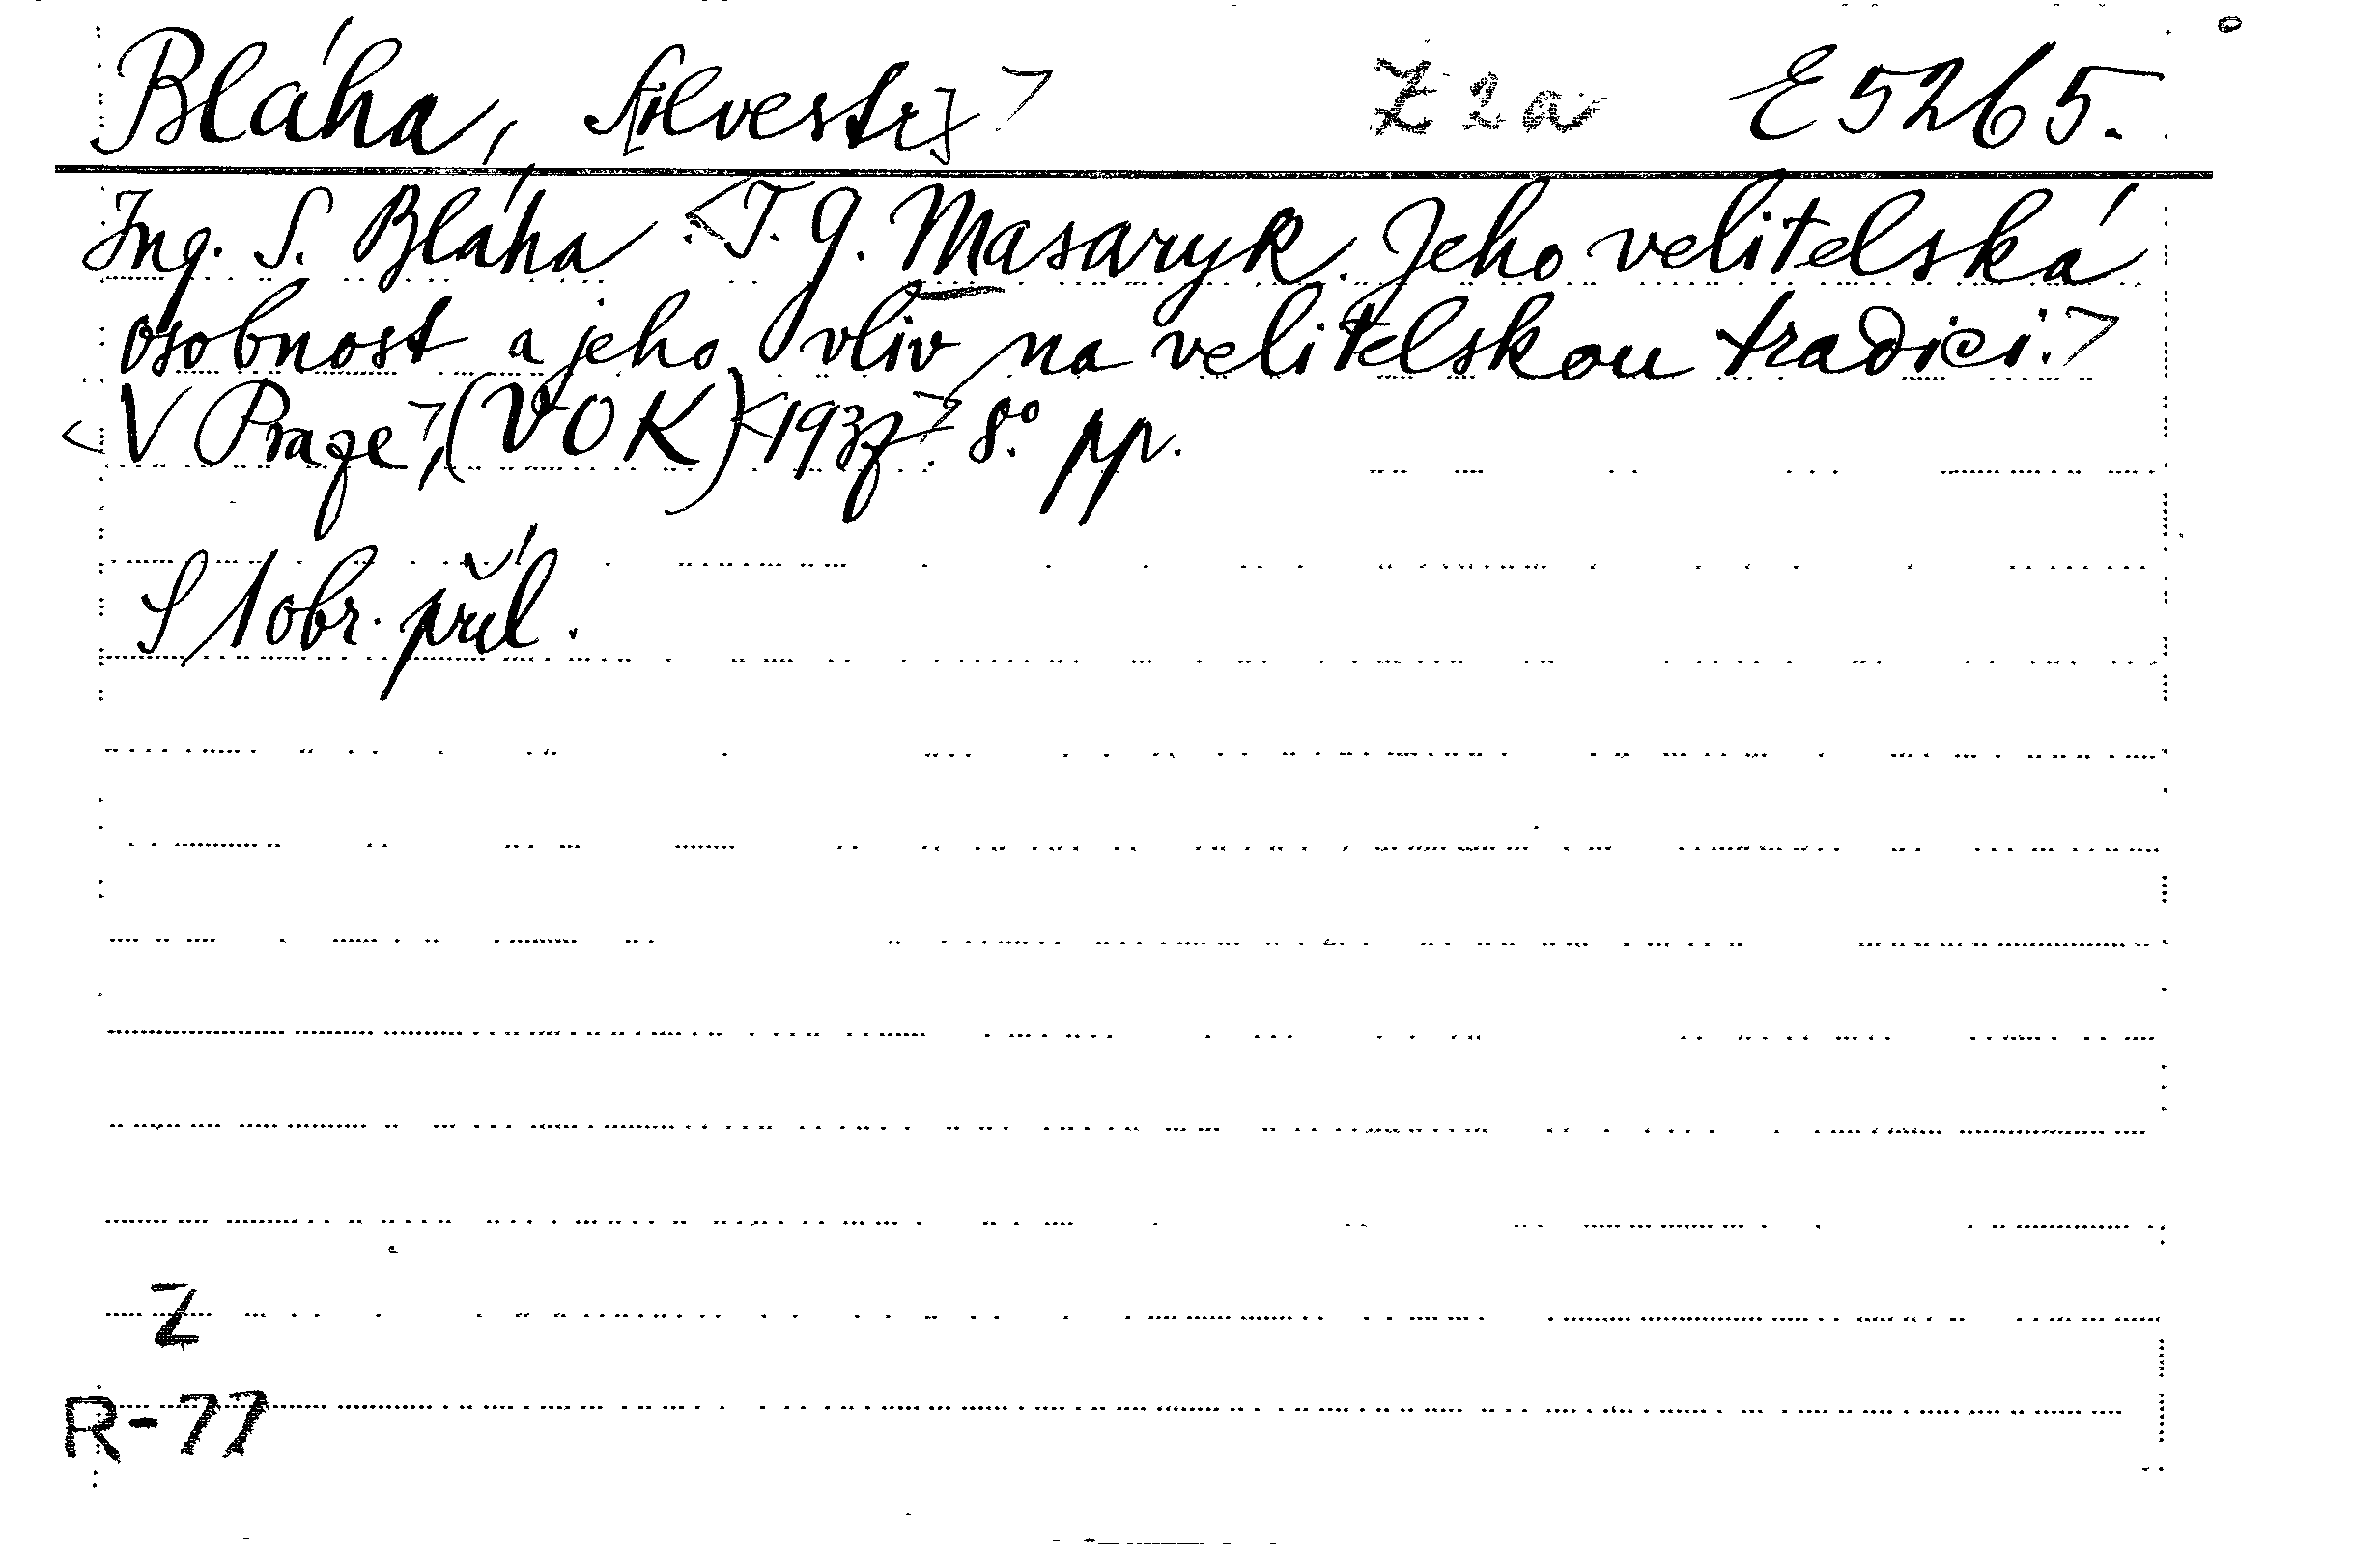 Bláha, S[ilvestr] > Z 2a E 5265.
Ing. S. Bláha: <T. G. Masaryk. Jeho velitelská
osobnost a jeho vliv na velitelskou tradici.>
<V Praze>, (VOK) <1937>. 8.° pp.
S 1 obr. příl.
Z
R-77